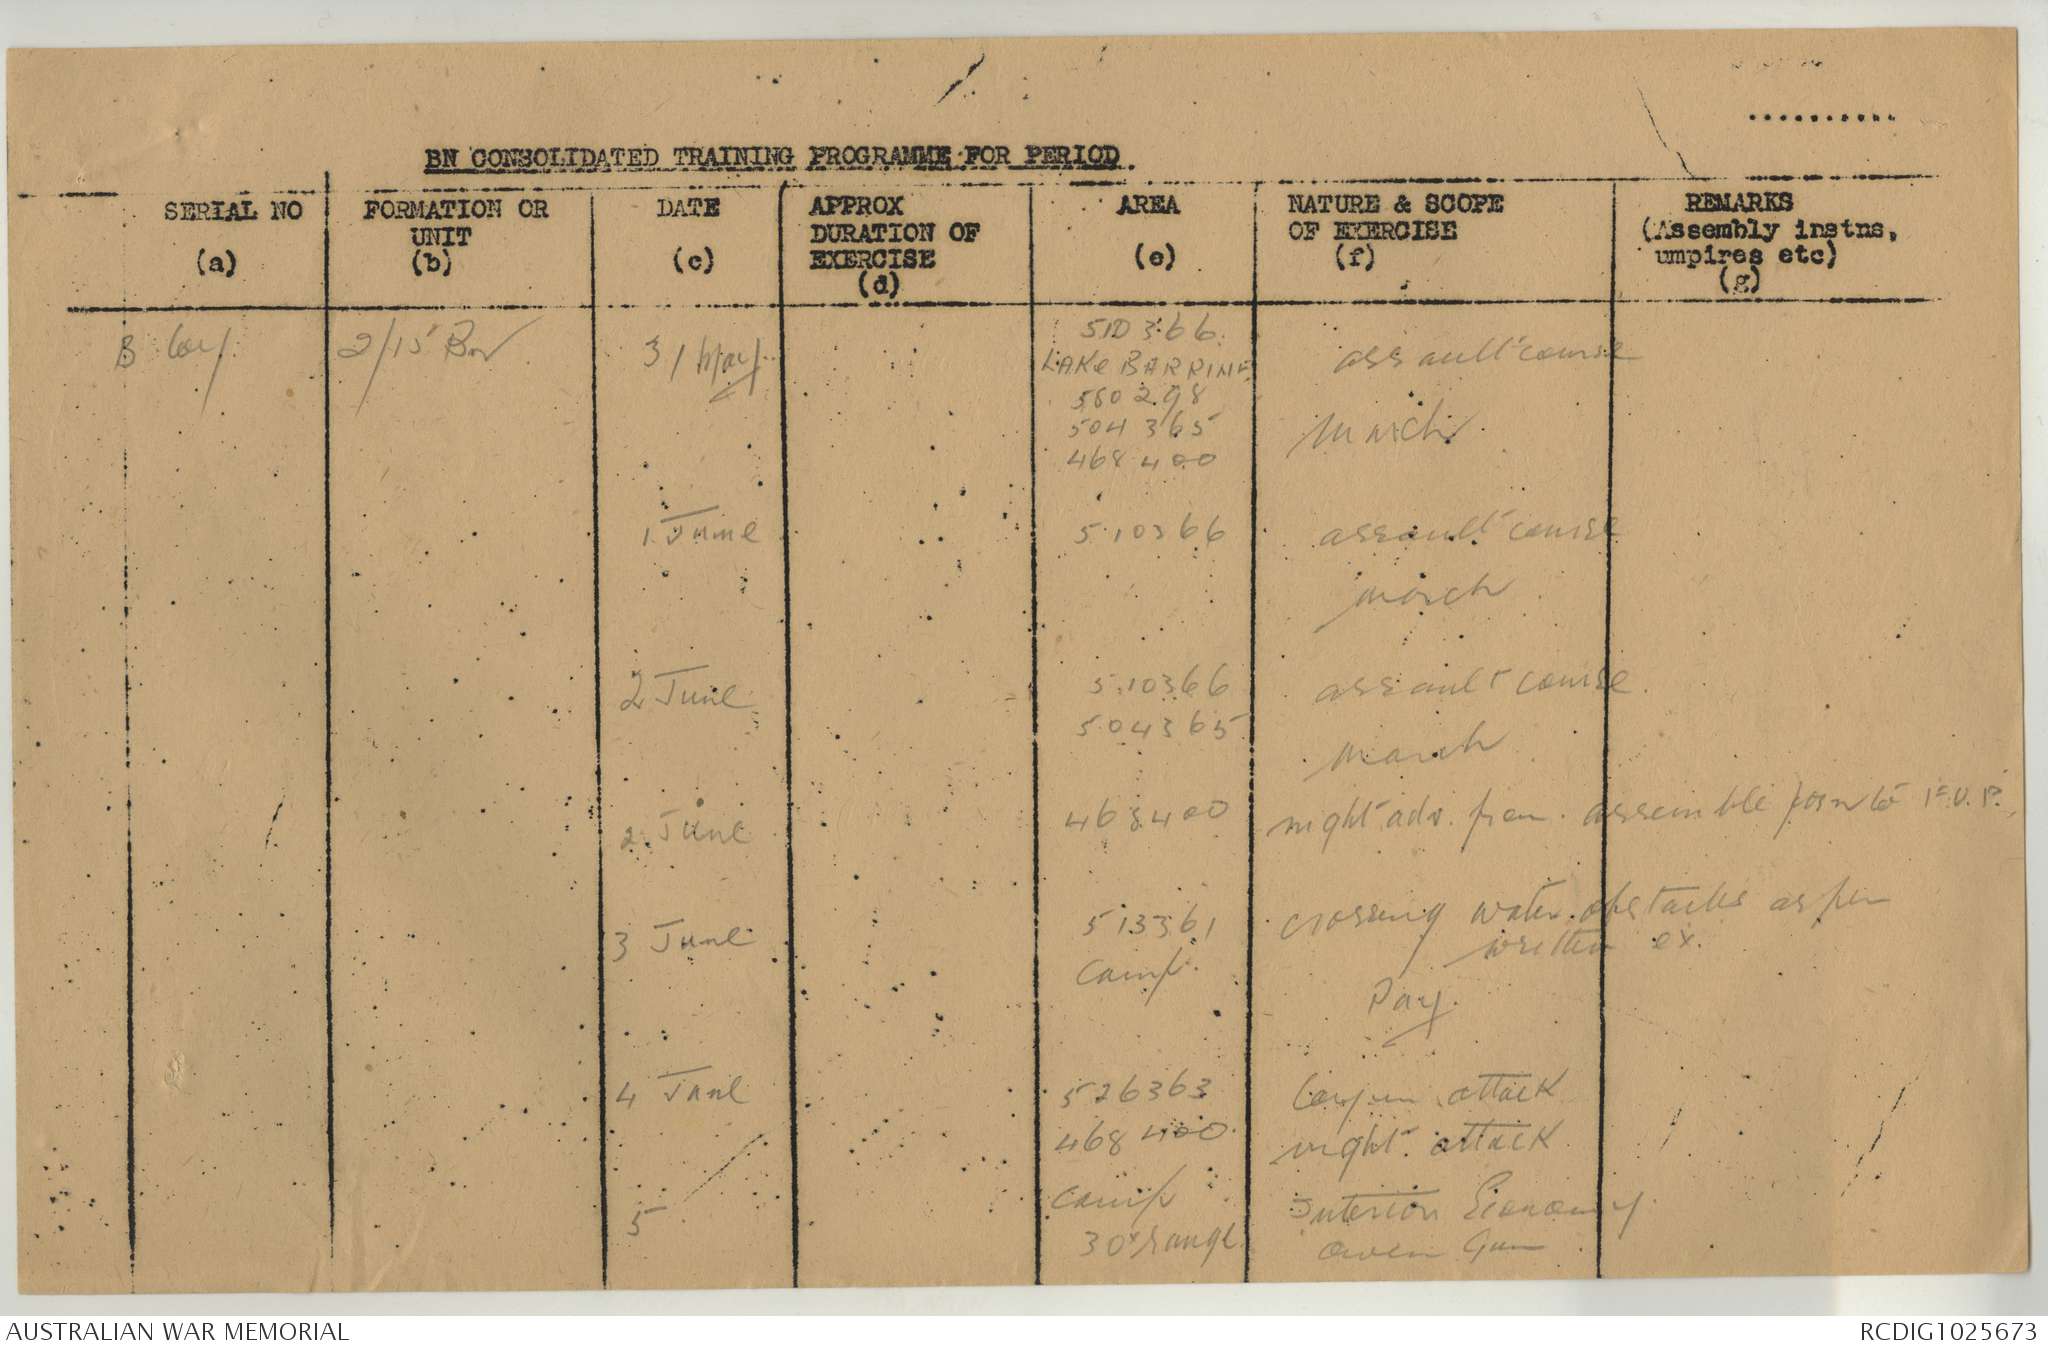 ..........
BN CONSOLIDATED TRAINING PROGRAMME FOR PERIOD.
SERIAL NO (a)
FORMATION OR UNIT (b)
DATE (c)
APPROX DURATION OF EXERCISE (d)
AREA (e)
NATURE & SCOPE OF EXERCISE (f)
REMARKS (Assembly instns, umpires etc) (g)
B Coy 2/15 Bn 31 May 510366 assault course
LAKE BARRINE
560298
504365 march
468400
1 June 510366 assault course
march
2 June 510366 assault course
504365
march
2 June 468400 night adv. from assemble posn to F.U.P.
3 June 513361 crossing water obstacles as per
written ex.
Camp Pay
4 June 526363 Coy attack
468400 night attack
5 Camp Interior Economy
30x range Owen Gun
AUSTRALIAN WAR MEMORIAL
RCDIG1025673